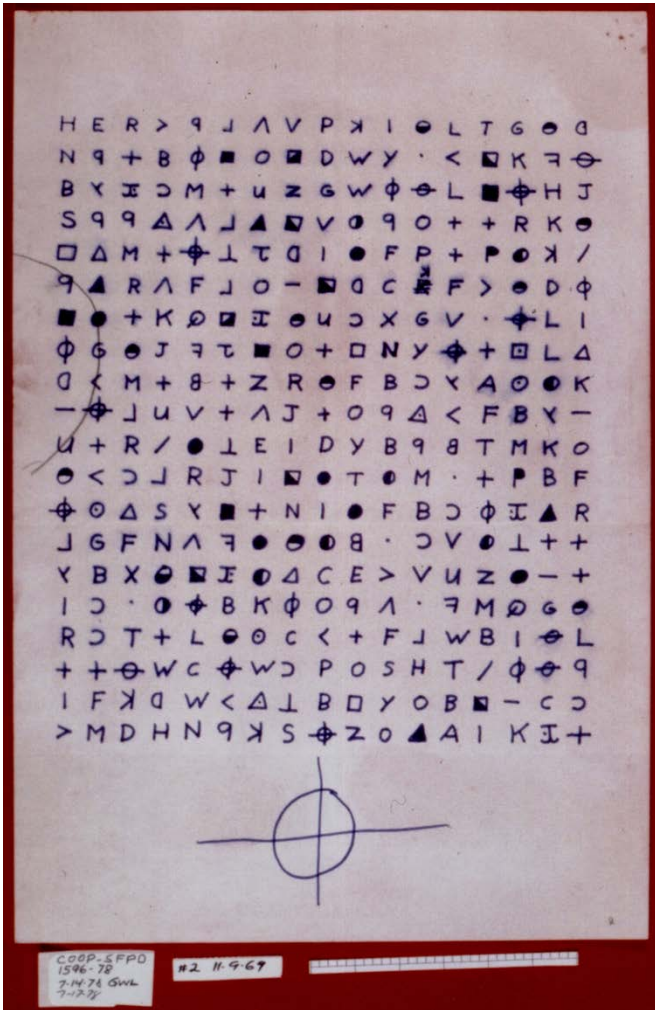 H E R > ꟼ ⅃ Λ V P ꓘ I ◒ L T G ◓ ᗡ
N ꟼ + B ϕ ■ O ◪ D W Y · < ◩ K ꟻ ⦵
B ⅄ 工 Ɔ M + u z G W ϕ ⦵ L ■ ⌖ H J
S ꟼ ꟼ ◬ Λ ⅃ ▲ ◩ V ◑ ꟼ O + + R K ◓
□ △ M + ⌖ ⊥ τ ᗡ I ● F P + P ◐ ꓘ /
ꟼ ▲ R Λ F ⅃ O - ◩ ᗡ C ꓘ F > ◒ D ϕ
■ ● + K ∅ ◪ 工 ◒ u Ɔ X G V · ⌖ L I
ϕ G ◒ J ꟻ τ ■ O + □ N Y ⌖ + ⊡ L △
ᗡ < M + 8 + Z R ◓ F B Ɔ ⅄ A ⊙ ◐ K
- ⌖ ⅃ u V + Λ J + O ꟼ ◬ < F B Y -
u + R / ● ⊥ E I D Y B ꟼ 8 T M K O
◒ < Ɔ ⅃ R J I ◩ ● T ◐ M · + P B F
⌖ ⊙ △ S ⅄ ■ + N I ● F B Ɔ ϕ 工 ▲ R
⅃ G F N Λ ꟻ ● ◒ ◐ 8 · Ɔ V ◐ ⊥ + +
⅄ B X ◓ ◩ 工 ◐ △ C E > V u z ● - +
I Ɔ · ◑ ⌖ B K ϕ O ꟼ Λ · ꟻ M ∅ G ◒
R Ɔ T + L ◒ ⊙ C < + F ⅃ W B I ⦵ L
+ + ⦵ W C ⌖ W Ɔ P O S H T / ϕ ⦵ ꟼ
I F ꓘ ᗡ W < ◬ ⊥ B □ Y O B ◩ - C Ɔ
> M D H N ꟼ ꓘ S ⌖ Z O ▲ A I K 工 +
COOP-SFPD
1596-78
7-14-78 GWL
7-17-78
#2 11-9-69